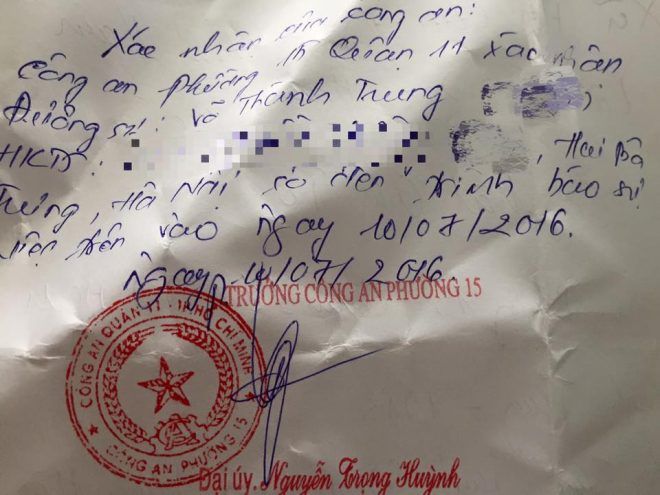 Xác nhận của công an:
Công an phường 15 Quận 11 xác nhận
Đương sự: Võ Thành Trung
HKTT: , Hai Bà
Trưng, Hà Nội có đến trình báo sự
việc trên vào ngày 10/07/2016.
Ngày 14/07/2016.
TRƯỞNG CÔNG AN PHƯỜNG 15
CÔNG AN QUẬN 11 - TP HỒ CHÍ MINH
CÔNG AN PHƯỜNG 15
Đại úy. Nguyễn Trọng Huỳnh